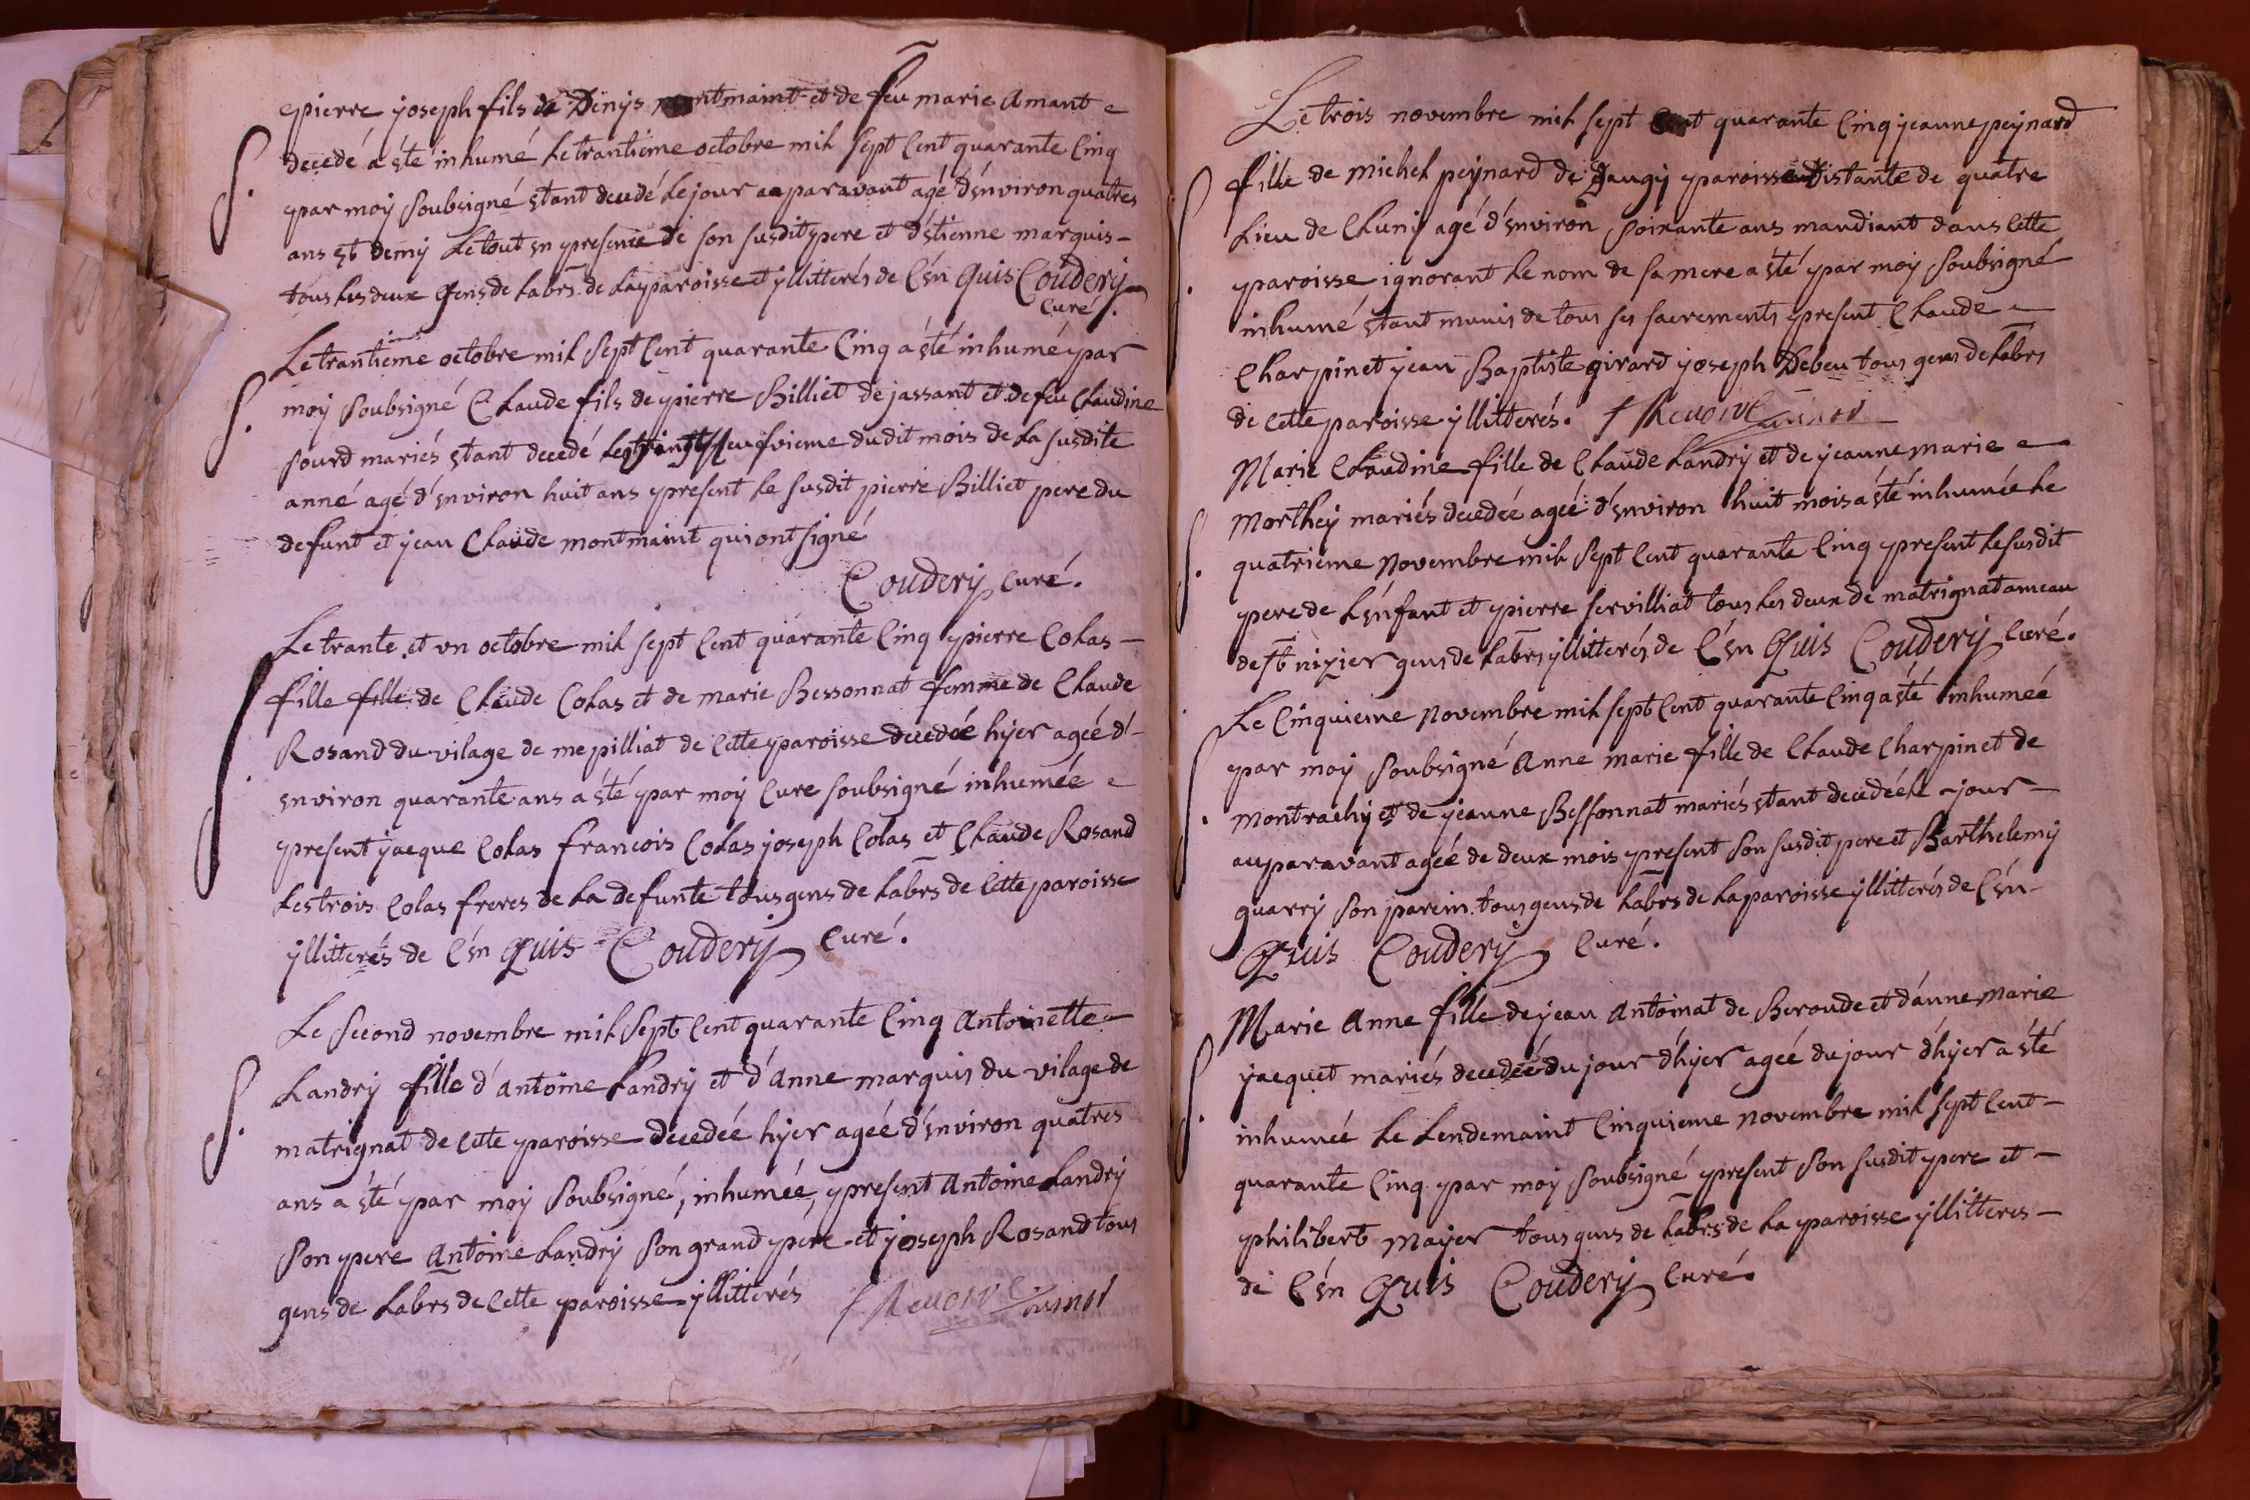 pierre joseph fils de Denys montmaint et de feu marie Amant
decedé a été inhumé le trantieme octobre mil sept cent quarante cinq
par moy soubsigné etant decedé le jour auparavant agé d'environ quatres
ans et demy le tout en presence de son susdit pere et d'étienne marquis
tous les deux gens de labrs de la paroisse et yllitterés de c'en quis Coudery
curé.
Le trantieme octobre mil sept cent quarante cinq a été inhumé par
moy soubsigné Claude fils de pierre Billiet de jassant et de feu Claudine
sourd mariés etant decedé le vingt neufvieme dudit mois de la susdite
anné agé d'environ huit ans present le susdit pierre Billiet pere du
defunt et jean Claude montmaint qui ont signé
Coudery curé.
Le trante et un octobre mil sept cent quarante cinq pierre Colas
fille fille de Claude Colas et de marie Bessonnat femme de Claude
Rosand du vilage de mepilliat de cette paroisse decedée hyer ageé d'
environ quarante ans a été par moy curé soubsigné inhumée
present jacque Colas francois Colas joseph Colas et Claude Rosand
les trois Colas freres de la defunte tous gens de labrs de cette paroisse
yllitterés de c'en quis Coudery curé.
Le second novembre mil sept cent quarante cinq Antoinette
Landry fille d'antoine Landry et d'anne marquis du vilage de
matrignat de cette paroisse decedeé hyer ageé d'environ quatres
ans a été par moy soubsigné, inhumeé, present Antoine Landry
son pere Antoine Landry son grand pere et joseph Rosand tous
gens de labrs de cette paroisse yllitterés
Le trois novembre mil sept cent quarante cinq jeanne peynard
fille de michel peynard de Daugy paroisse distante de quatre
lieu de Cluny agé d'environ soixante ans mandiant dans cette
paroisse ignorant le nom de sa mere a été par moy soubsigné
inhumé etant munis de tous ses sacrements present Claude
Charpinet jean Baptiste girard joseph Debeu tous gens de labrs
de cette paroisse yllitterés.
Marie Claudine fille de Claude Landry et de jeanne marie
Morthey mariés decedeé ageé d'environ huit mois a été inhumée le
quatrieme Novembre mil sept cent quarante cinq present le susdit
pere de l'enfant et pierre servilliat tous les deux de matrignat ameau
de st nizier gens de labrs yllitterés de c'en quis Coudery curé.
Le cinquieme Novembre mil sept cent quarante cinq a été inhumeé
par moy soubsigné Anne marie fille de Claude Charpinet de
montrachy et de jeanne Bessonnat mariés etant decedeé le jour
auparavant ageé de deux mois present son susdit pere et Barthelemy
quarry son parein tous gens de labrs de la paroisse yllitterés de c'en
quis Coudery curé.
Marie Anne fille de jean Antoinat de Beroude et d'anne marie
jacquet mariés decedeé du jour d'hyer ageé du jour d'hyer a été
inhumeé le lendemaint cinquieme novembre mil sept cent
quarante cinq par moy soubsigné present son susdit pere et
philibert mayer tous gens de labrs de la paroisse yllitteres
de c'en quis Coudery curé.